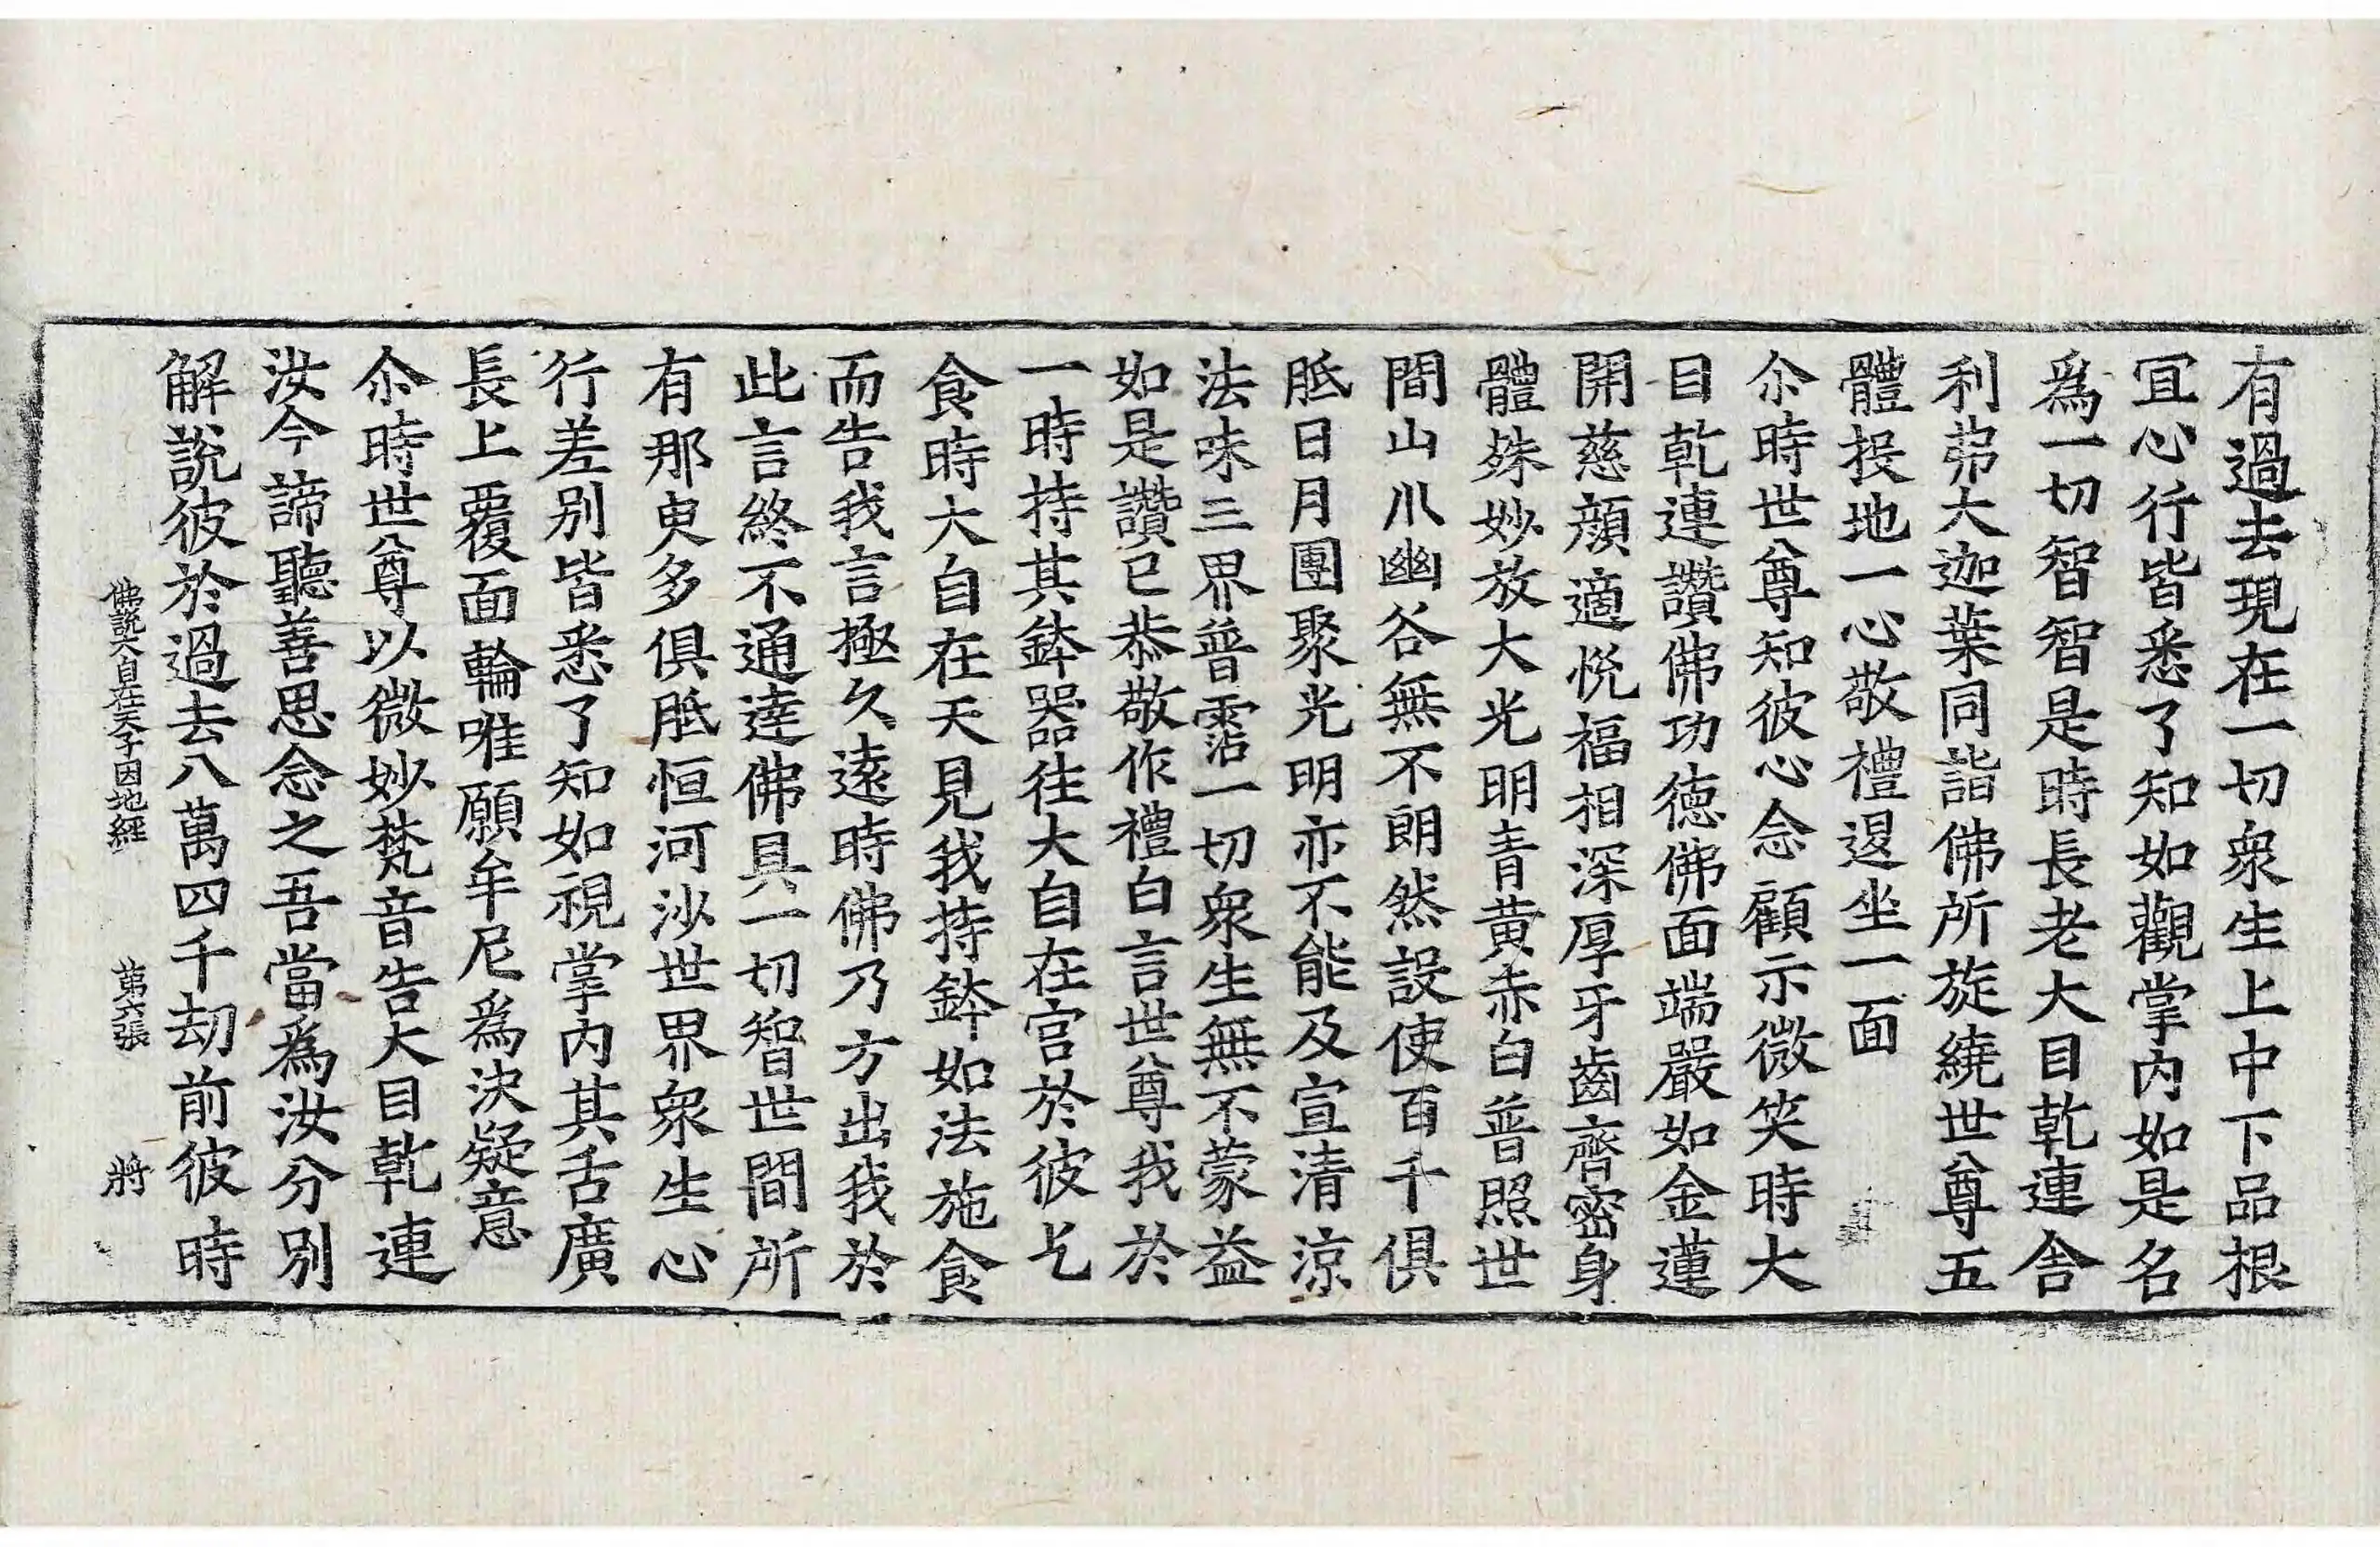 有過去現在一切衆生上中下品根
冝心行皆悉了知如觀掌内如是名
爲一切智智是時長老大目乾連舍
利弗大迦葉同詣佛所旋繞世尊五
體投地一心敬禮退坐一面
尒時世尊知彼心念顧示微笑時大
目乾連讚佛功德佛面端嚴如金蓮
開慈顔適悅福相深厚牙齒齊密身
體殊妙放大光明青黄赤白普照世
間山川幽谷無不朗然設使百千俱
胝日月團聚光明亦不能及宣清涼
法味三界普霑一切衆生無不蒙益
如是讚已恭敬作禮白言世尊我於
一時持其鉢器往大自在宫於彼乞
食時大自在天見我持鉢如法施食
而告我言極久遠時佛乃方出我於
此言終不通達佛具一切智世間所
有那庾多俱胝恒河沙世界衆生心
行差别皆悉了知如視掌内其舌廣
長上覆面輪唯願牟尼爲決疑意
尒時世尊以微妙梵音告大目乾連
汝今諦聽善思念之吾當爲汝分别
解說彼於過去八萬四千劫前彼時
佛説大自在天子因地經 第六張 將